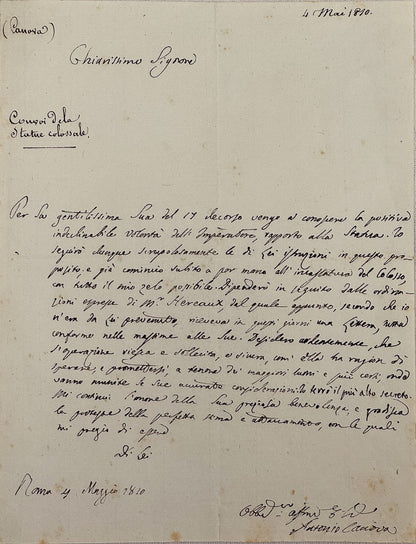 4 Mai 1810.
(Canova)
Chiarissimo Signore
Convoi de la
Statue colossale.
Per la gentilissima Sua del 17 decorso vengo a conoscere la positiva
indeclinabile volontà dell'Imperatore, rapporto alla Statua. Io
seguirò dunque scrupolosamente le di Lei istruzioni in questo pro-
posito, e già comincio subito a por mano all'incassatura del Colosso
con tutto il mio zelo possibile. Dipenderò in seguito dalle ordina-
zioni espresse di M.r dal quale appunto, secondo che io
n'era da Lei prevenuto, riceveva in questi giorni una Lettera, tutta
conforme nelle massime alle Sue. Desidero ardentemente, che
l'operazione riesca e sollecita, e sicura, com'Ella ha ragion di
sperare, e promettersi, a tenore dei maggiori lumi e più certi, onde
vanno munite le Sue accurate considerazioni. Io terrò il più alto secreto.
Mi continui l'onore della Sua pregiata benevolenza, e gradisca
la protesta della perfetta stima e attaccamento, con le quali
mi pregio di essere
Di Lei
Roma 4 Maggio 1810
Antonio Canova